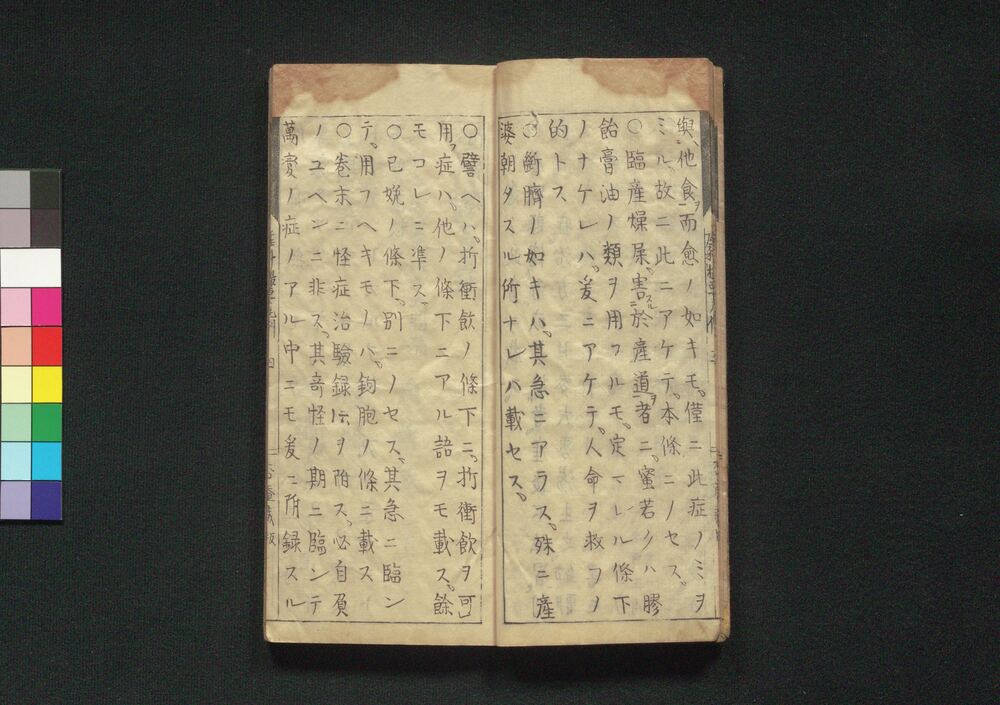 與他食ヲ而愈ノ如キモ。僅ニ此症ノミヲ
ミル故ニ此ニアケテ。本條ニノセス。
○臨産燥屎。害スル於産道ヲ者ニ。蜜若クハ膠
飴膏油ノ類ヲ用フルモ。定マレル條下
ノナケレハ。爰ニアケテ。人命ヲ救フノ
的トス
○断臍ノ如キハ。其急ニアラス。殊ニ産
婆朝タスル所ナレハ載セス。
○譬ヘハ。折衝飲ノ條下ニ。折衝飲ヲ可
用フ症ハ。他ノ條下ニアル語ヲモ載ス。餘
モコレニ準ス
○已娩ノ條下。別ニノセス。其急ニ臨ン
テ。用フヘキモノハ。鉤胞ノ條ニ載ス
○巻末ニ怪症治驗録ヲ附ス。必自負
ノユヘンニ非ス。其奇怪ノ期ニ臨ンテ
萬変ノ症ノアル中ニモ爰ニ附録スル